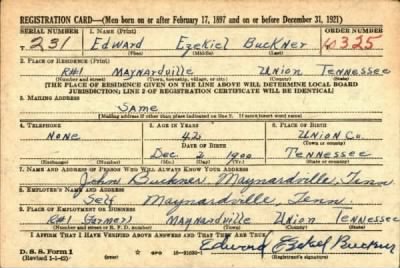 REGISTRATION CARD—(Men born on or after February 17, 1897 and on or before December 31, 1921)
SERIAL NUMBER 1. NAME (Print) ORDER NUMBER
T 231 Edward Ezekiel Buckner 4325
(First) (Middle) (Last)
2. PLACE OF RESIDENCE (Print)
R#1 Maynardville Union Tennessee
(Number and street) (Town, township, village, or city) (County) (State)
[THE PLACE OF RESIDENCE GIVEN ON THE LINE ABOVE WILL DETERMINE LOCAL BOARD
JURISDICTION; LINE 2 OF REGISTRATION CERTIFICATE WILL BE IDENTICAL]
3. MAILING ADDRESS
Same
[Mailing address if other than place indicated on line 2. If same insert word same]
4. TELEPHONE 5. AGE IN YEARS 6. PLACE OF BIRTH
None 42 Union Co.
DATE OF BIRTH (Town or county)
Dec 2 1900 Tennessee
(Exchange) (Number) (Mo.) (Day) (Yr.) (State or country)
7. NAME AND ADDRESS OF PERSON WHO WILL ALWAYS KNOW YOUR ADDRESS
John Buckner Maynardville, Tenn
8. EMPLOYER'S NAME AND ADDRESS
Self Maynardville, Tenn.
9. PLACE OF EMPLOYMENT OR BUSINESS
R#1 Maynardville Union Tennessee
(Number and street or R. F. D. number) (Town) (County) (State)
I AFFIRM THAT I HAVE VERIFIED ABOVE ANSWERS AND THAT THEY ARE TRUE.
D. S. S. Form 1 Edward Ezekel Buckner
(Registrant's signature)